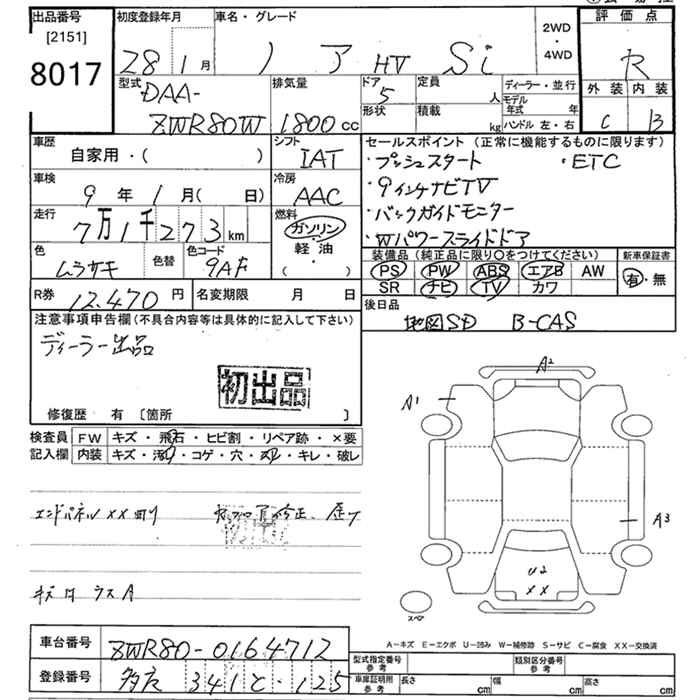 出品番号 初度登録年月 車名・グレード 2WD・4WD 評価点
[2151]
8017
28 1月 ノア HV Si R
型式 排気量 ドア 定員 ディーラー・並行 外装 内装
DAA- 5 人 モデル年式 年
ZWR80W 1800cc 形状 積載 kg ハンドル 左・右 C B
車歴 シフト セールスポイント (正常に機能するものに限ります)
自家用・( ) IAT ・プッシュスタート ・ETC
車検 冷房 ・9インチナビTV
9年 1月 ( 日) AAC ・バックガイドモニター
走行 燃料 ・Wパワースライドドア
7万1千273km ガソリン・軽油・( )
色 色替 色コード 装備品 (純正品に限り○をつけてください) 新車保証書
ムラサキ 9AF PS PW ABS エアB AW 有・無
SR ナビ TV カワ
R券 12,470円 名変期限 月 日 後日品
地図SD B-CAS
注意事項申告欄(不具合内容等は具体的に記入して下さい)
ディーラー出品
初出品
修復歴 有 〔箇所 〕
検査員記入欄 FW キズ・飛石・ヒビ割・リペア跡・×要
内装 キズ・汚れ・コゲ・穴・スレ・キレ・破レ
エンドパネルXX
キズ 小 ウスA
A2
A1
A3
U2
XX
スペア
A-キズ E-エクボ U-凹み W-補修跡 S-サビ C-腐食 XX-交換済
車台番号 ZWR80-0164712
登録番号 341 125
型式指定番号 参考 類別区分番号 参考
車庫証明用 参考 長さ cm 幅 cm 高さ cm